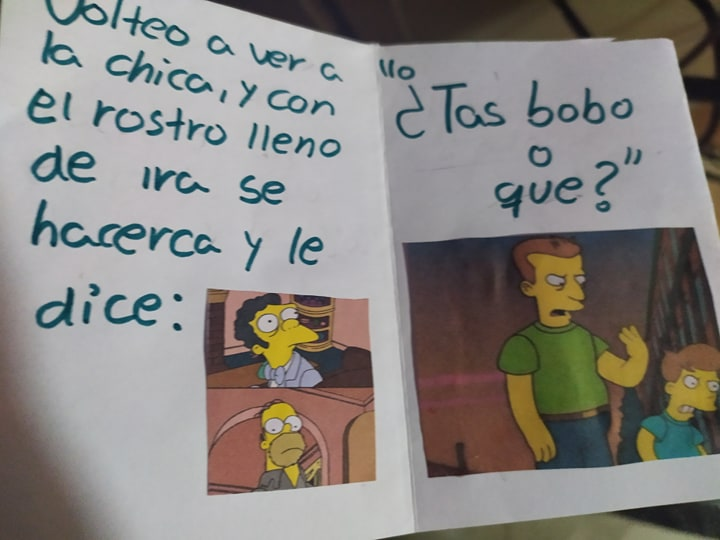 Volteo a ver a
la chica, y con
el rostro lleno
de ira se
hacerca y le
dice:
"o
¿Tas bobo
o
que?"